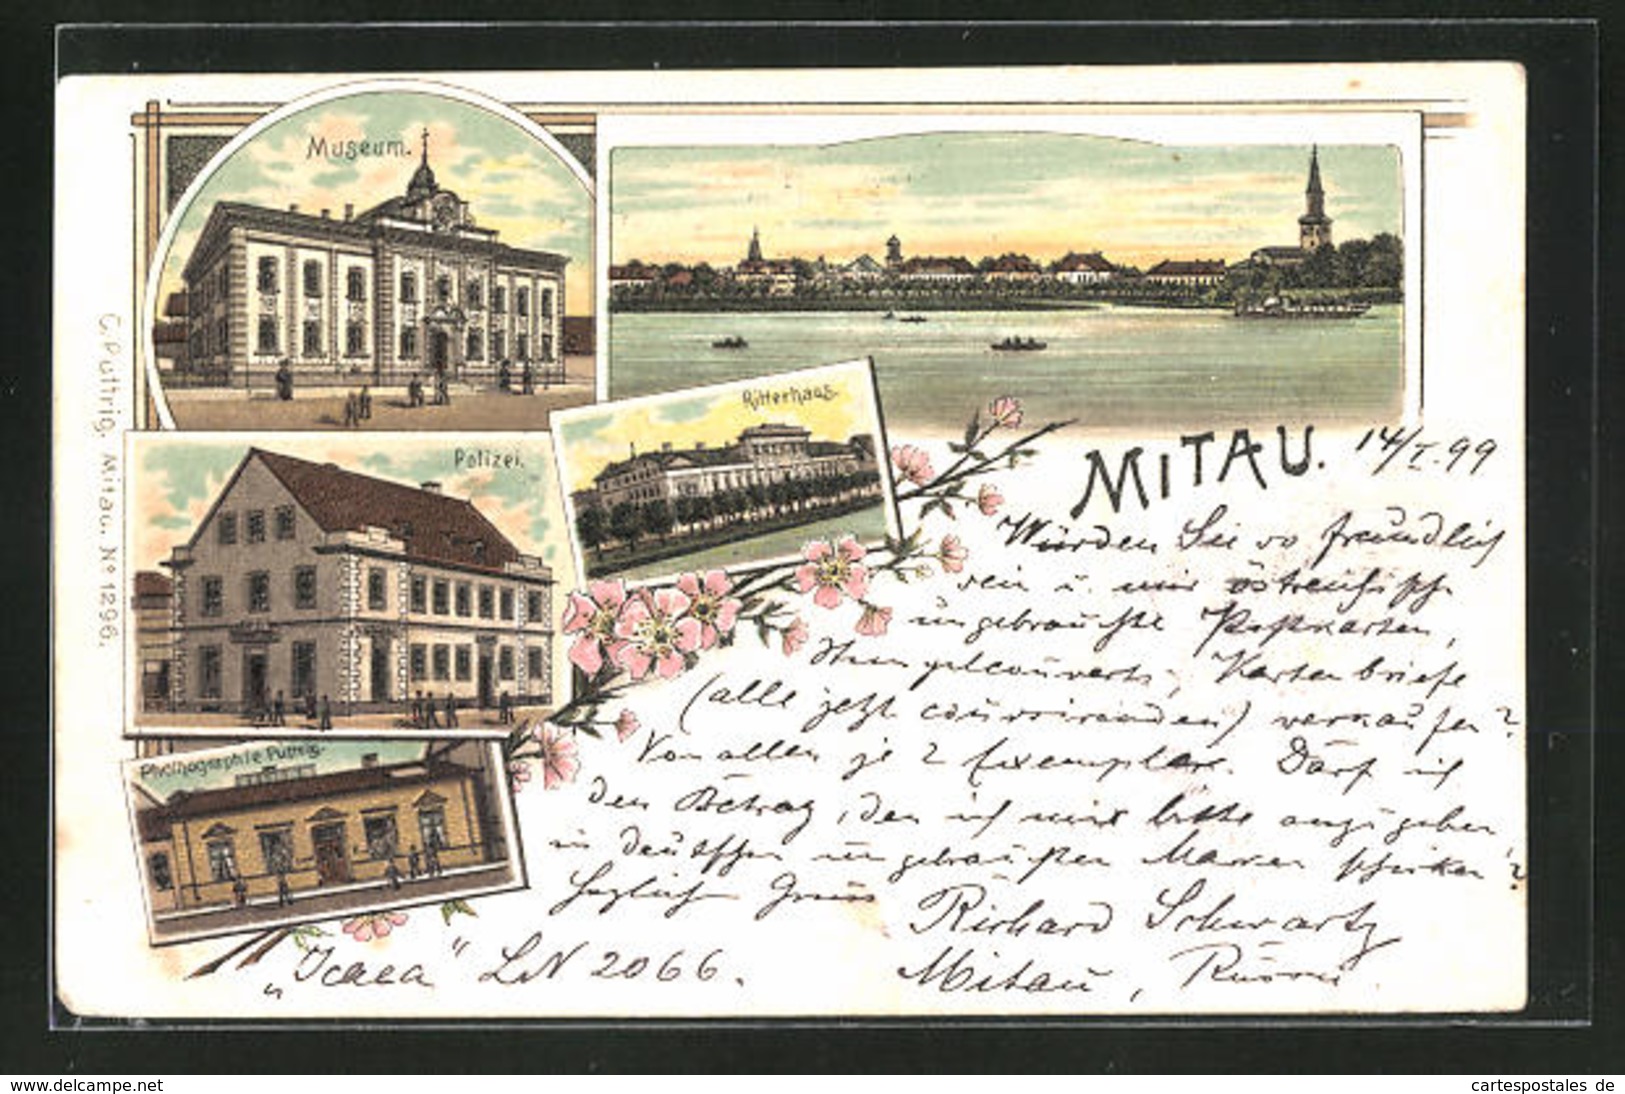 Museum.
Ritterhaus.
Polizei.
Photographie Puttrig.
C. Puttrig, Mitau. No 1296.
MITAU. 14/I.99
Würden Sie so freundlich
sein u. mir östreichische
ungebrauchte Postkarten,
Stempelcouverts, Kartenbriefe
(alle jetzt coursirenden) verkaufen?
Von allen je 2 Exemplare. Darf ich
den Betrag, den ich mir bitte anzugeben
in deutschen ungebrauchten Marken schicken?
Herzlich Gruss Richard Schwartz
„Icaea“ LN 2066. Mitau,
www.delcampe.net
cartespostales de